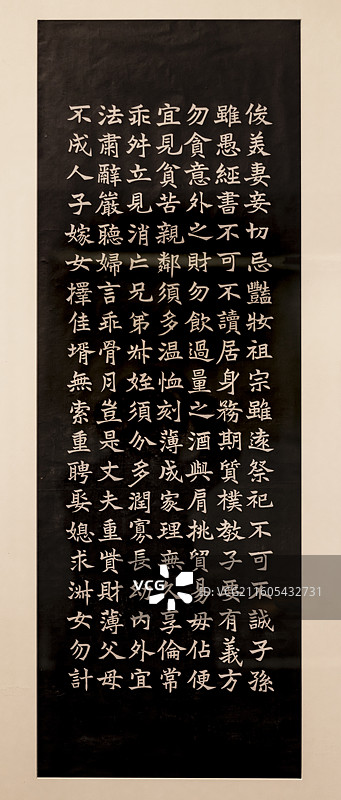 俊美妻妾切忌豔妝祖宗雖遠祭祀不可不誠子孫
雖愚經書不可不讀居身務期質樸教子要有義方
勿貪意外之財勿飲過量之酒與肩挑貿易毋佔便
宜見貧苦親鄰須多温恤刻薄成家理無久享倫常
乖舛立見消亡兄弟叔姪須分多潤寡長幼内外宜
法肅辭嚴聽婦言乖骨肉豈是丈夫重貲財薄父母
不成人子嫁女擇佳壻無索重聘娶媳求淑女勿計
VCG
VCG211605432731